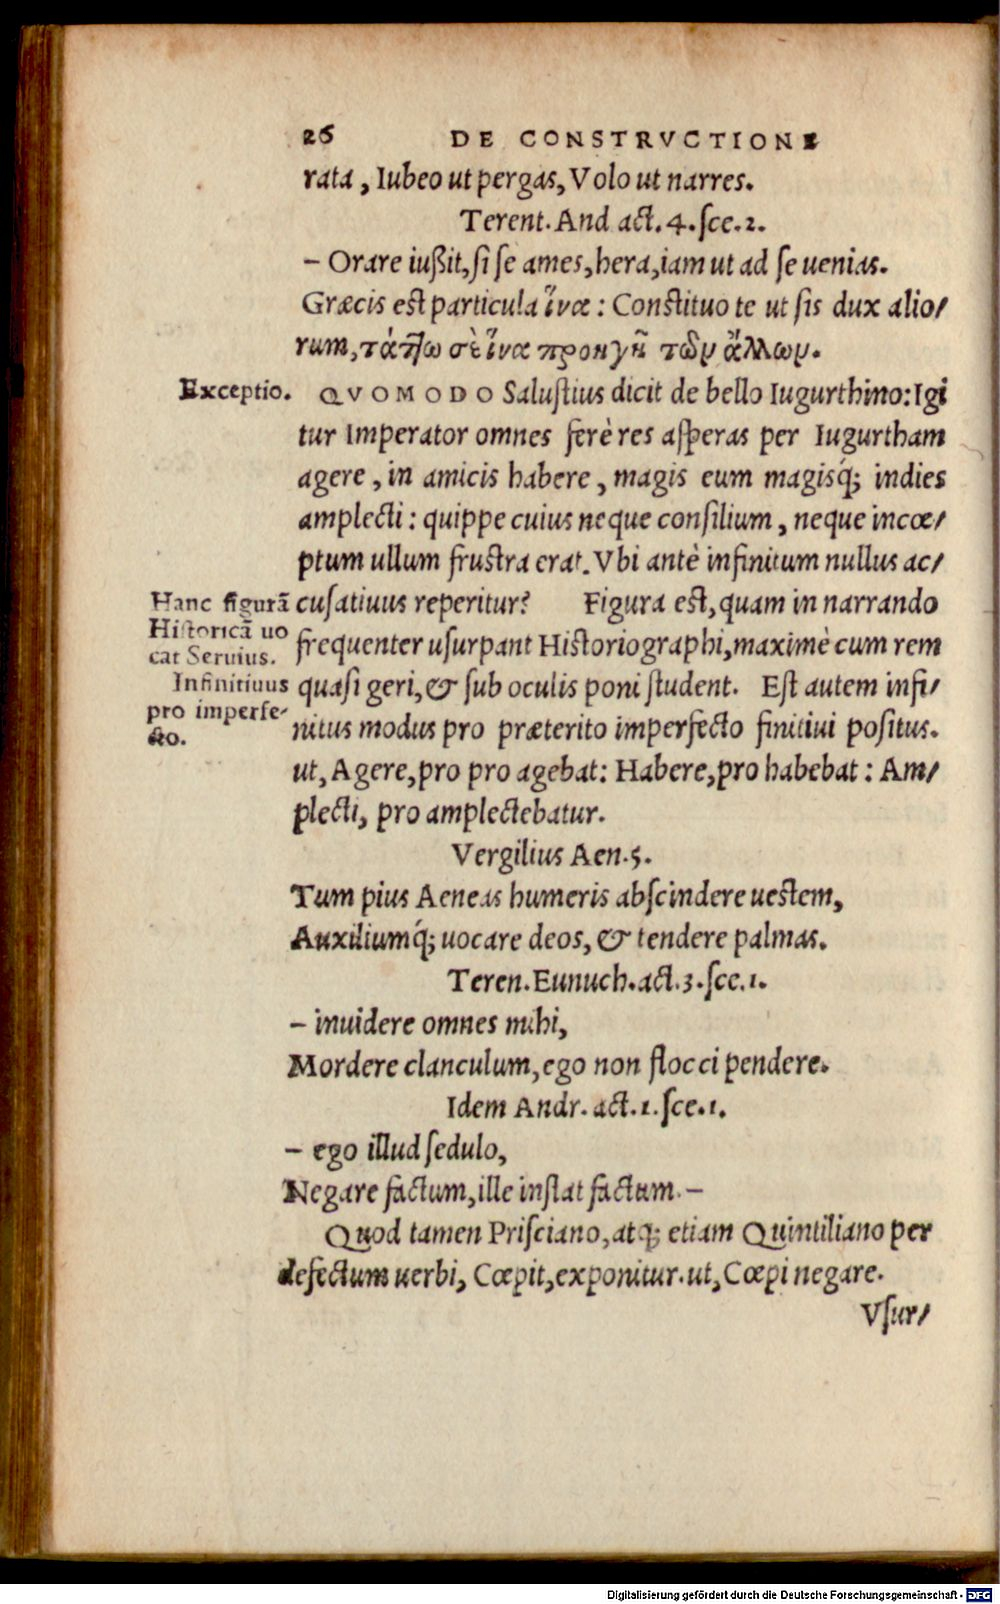 26 DE CONSTRVCTIONE
rata, Iubeo ut pergas, Volo ut narres.
Terent. And act. 4. sce. 2.
– Orare iußit, si se ames, hera, iam ut ad se uenias.
Græcis est particula ἵνα: Constituo te ut sis dux alio/
rum, τάτ]ω σὲ ἵνα προηγῇ τῶν ἄλλων.
Exceptio.
QVOMODO Salustius dicit de bello Iugurthino: Igi
tur Imperator omnes ferè res asperas per Iugurtham
agere, in amicis habere, magis eum magisq́; indies
amplecti: quippe cuius neque consilium, neque incœ/
ptum ullum frustra erat. Vbi antè infinitum nullus ac/
cusatiuus reperitur? Figura est, quam in narrando
Hanc figurã
Historicã uo
cat Seruius.
Infinitiuus
pro imperfe-
cto.
frequenter usurpant Historiographi, maximè cum rem
quasi geri, & sub oculis poni student. Est autem infi/
nitus modus pro præterito imperfecto finitiui positus.
ut, Agere, pro pro agebat: Habere, pro habebat: Am/
plecti, pro amplectebatur.
Vergilius Aen. 5.
Tum pius Aeneas humeris abscindere uestem,
Auxiliumq́; uocare deos, & tendere palmas.
Teren. Eunuch. act. 3. sce. 1.
– inuidere omnes mihi,
Mordere clanculum, ego non flocci pendere.
Idem Andr. act. 1. sce. 1.
– ego illud sedulo,
Negare factum, ille instat factum. –
Quod tamen Prisciano, atq; etiam Quintiliano per
defectum uerbi, Cœpit, exponitur. ut, Cœpi negare.
Vsur/
Digitalisierung gefördert durch die Deutsche Forschungsgemeinschaft - DFG